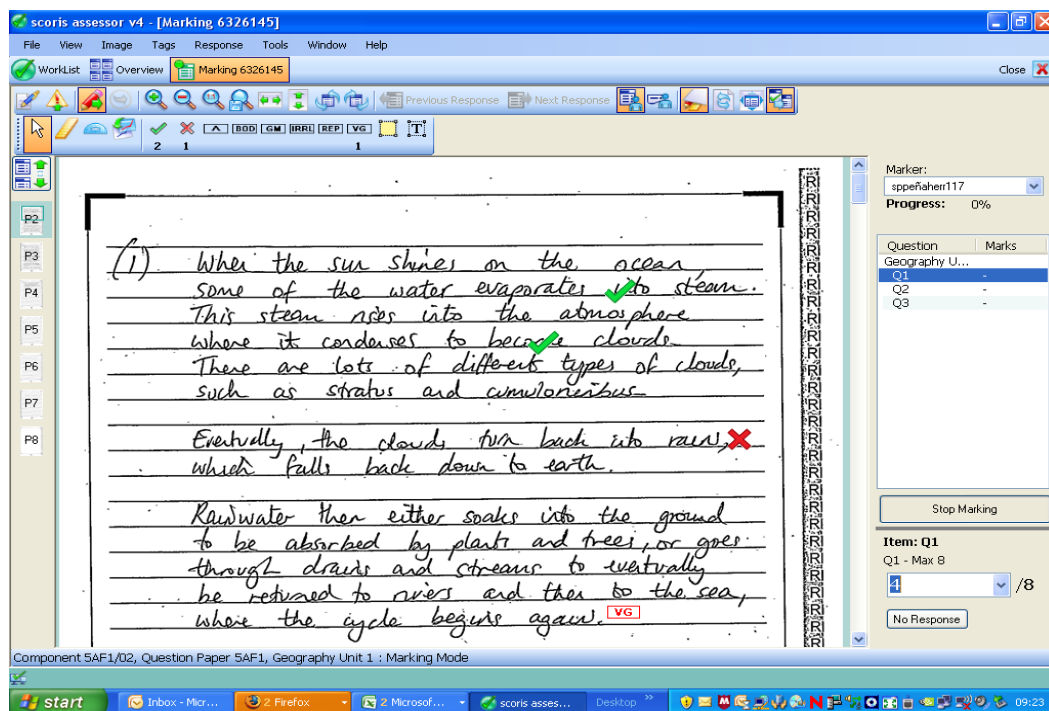 scoris assessor v4 - [Marking 6326145]
File View Image Tags Response Tools Window Help
WorkList Overview Marking 6326145 Close
Previous Response Next Response
BOD GM IRRL REP VG T
2 1 1
P2
P3
P4
P5
P6
P7
P8
(1) When the sun shines on the ocean,
some of the water evaporates into steam.
This steam rises into the atmosphere
where it condenses to become clouds.
There are lots of different types of clouds,
such as stratus and cumulonimbus
Eventually, the clouds turn back into rain,
which falls back down to earth.
Rainwater then either soaks into the ground
to be absorbed by plants and trees, or goes
through drains and streams to eventually
be returned to rivers and then to the sea,
where the cycle begins again. VG
Marker:
sppeñaherr117
Progress: 0%
Question Marks
Geography U...
Q1 -
Q2 -
Q3 -
Stop Marking
Item: Q1
Q1 - Max 8
4 /8
No Response
Component 5AF1/02, Question Paper 5AF1, Geography Unit 1 : Marking Mode
start Inbox - Micr... 2 Firefox 2 Microsof... scoris asses... Desktop » 09:23